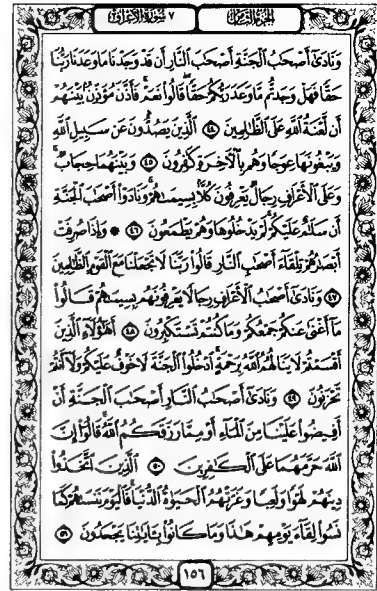 الجزء الثامن
٧ سورة الأعراف
وَنَادَىٰٓ أَصْحَٰبُ ٱلْجَنَّةِ أَصْحَٰبَ ٱلنَّارِ أَن قَدْ وَجَدْنَا مَا وَعَدَنَا رَبُّنَا
حَقًّا فَهَلْ وَجَدتُّم مَّا وَعَدَ رَبُّكُمْ حَقًّا ۖ قَالُوا۟ نَعَمْ ۚ فَأَذَّنَ مُؤَذِّنٌۢ بَيْنَهُمْ
أَن لَّعْنَةُ ٱللَّهِ عَلَى ٱلظَّٰلِمِينَ ٤٤ ٱلَّذِينَ يَصُدُّونَ عَن سَبِيلِ ٱللَّهِ
وَيَبْغُونَهَا عِوَجًا وَهُم بِٱلْءَاخِرَةِ كَٰفِرُونَ ٤٥ وَبَيْنَهُمَا حِجَابٌ ۚ
وَعَلَى ٱلْأَعْرَافِ رِجَالٌ يَعْرِفُونَ كُلًّۢا بِسِيمَىٰهُمْ ۚ وَنَادَوْا۟ أَصْحَٰبَ ٱلْجَنَّةِ
أَن سَلَٰمٌ عَلَيْكُمْ ۚ لَمْ يَدْخُلُوهَا وَهُمْ يَطْمَعُونَ ٤٦ ۞ وَإِذَا صُرِفَتْ
أَبْصَٰرُهُمْ تِلْقَآءَ أَصْحَٰبِ ٱلنَّارِ قَالُوا۟ رَبَّنَا لَا تَجْعَلْنَا مَعَ ٱلْقَوْمِ ٱلظَّٰلِمِينَ
٤٧ وَنَادَىٰٓ أَصْحَٰبُ ٱلْأَعْرَافِ رِجَالًا يَعْرِفُونَهُم بِسِيمَىٰهُمْ قَالُوا۟
مَآ أَغْنَىٰ عَنكُمْ جَمْعُكُمْ وَمَا كُنتُمْ تَسْتَكْبِرُونَ ٤٨ أَهَٰٓؤُلَآءِ ٱلَّذِينَ
أَقْسَمْتُمْ لَا يَنَالُهُمُ ٱللَّهُ بِرَحْمَةٍ ۚ ٱدْخُلُوا۟ ٱلْجَنَّةَ لَا خَوْفٌ عَلَيْكُمْ وَلَآ أَنتُمْ
تَحْزَنُونَ ٤٩ وَنَادَىٰٓ أَصْحَٰبُ ٱلنَّارِ أَصْحَٰبَ ٱلْجَنَّةِ أَنْ
أَفِيضُوا۟ عَلَيْنَا مِنَ ٱلْمَآءِ أَوْ مِمَّا رَزَقَكُمُ ٱللَّهُ ۚ قَالُوٓا۟ إِنَّ
ٱللَّهَ حَرَّمَهُمَا عَلَى ٱلْكَٰفِرِينَ ٥٠ ٱلَّذِينَ ٱتَّخَذُوا۟
دِينَهُمْ لَهْوًا وَلَعِبًا وَغَرَّتْهُمُ ٱلْحَيَوٰةُ ٱلدُّنْيَا ۚ فَٱلْيَوْمَ نَنسَىٰهُمْ كَمَا
نَسُوا۟ لِقَآءَ يَوْمِهِمْ هَٰذَا وَمَا كَانُوا۟ بِـَٔايَٰتِنَا يَجْحَدُونَ ٥١
١٥٦